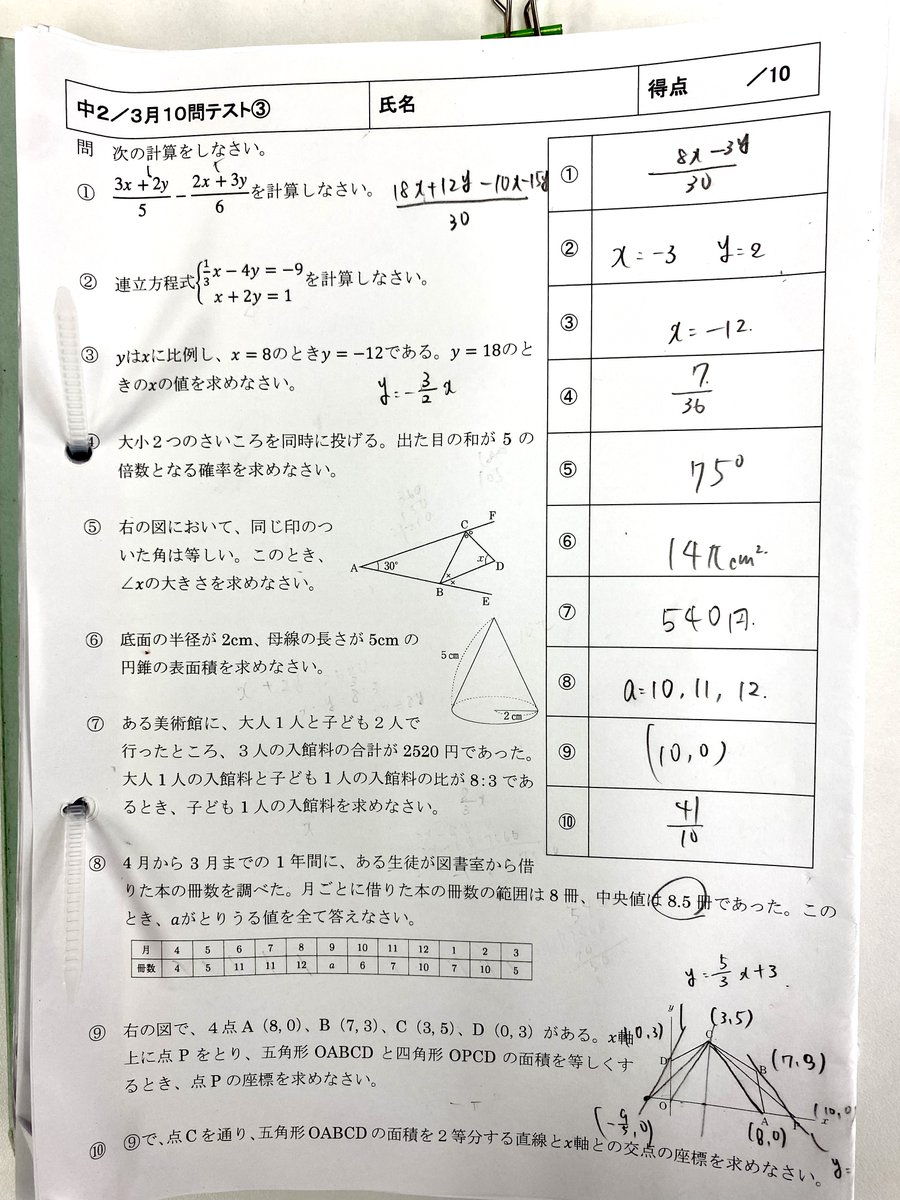 中２／３月１０問テスト③
氏名
得点 ／10
問 次の計算をしなさい。
① (3x + 2y)/5 − (2x + 3y)/6 を計算しなさい。
(18x+12y−10x−15y)/30
② 連立方程式{ (1/3)x − 4y = −9
x + 2y = 1 を計算しなさい。
③ yはxに比例し、x = 8のときy = −12である。y = 18のと
きのxの値を求めなさい。
y=−(3/2)x
④ 大小２つのさいころを同時に投げる。出た目の和が 5 の
倍数となる確率を求めなさい。
⑤ 右の図において、同じ印のつ
いた角は等しい。このとき、
∠xの大きさを求めなさい。
A 30° B C D E F x
⑥ 底面の半径が 2cm、母線の長さが 5cm の
円錐の表面積を求めなさい。
5㎝
2㎝
⑦ ある美術館に、大人１人と子ども２人で
行ったところ、３人の入館料の合計が 2520 円であった。
大人１人の入館料と子ども１人の入館料の比が 8:3 であ
るとき、子ども１人の入館料を求めなさい。
① (8x−3y)/30
② x=−3 y=2
③ x=−12.
④ 7/36
⑤ 75°
⑥ 14π cm²
⑦ 540円.
⑧ a=10, 11, 12.
⑨ (10,0)
⑩ 41/10
⑧ ４月から３月までの１年間に、ある生徒が図書室から借
りた本の冊数を調べた。月ごとに借りた本の冊数の範囲は８冊、中央値は 8.5 冊であった。この
とき、aがとりうる値を全て答えなさい。
月 4 5 6 7 8 9 10 11 12 1 2 3
冊数 4 5 11 11 12 a 6 7 10 7 10 5
y=(5/3)x+3
⑨ 右の図で、４点A（8, 0）、B（7, 3）、C（3, 5）、D（0, 3）がある。x軸
上に点 P をとり、五角形 OABCD と四角形 OPCD の面積を等しくす
るとき、点 P の座標を求めなさい。
y (0,3) (3,5)
D C B (7,3)
O A P x (10,0)
(−9/5,0) (8,0)
y=
⑩ ⑨で、点Cを通り、五角形OABCDの面積を２等分する直線とx軸との交点の座標を求めなさい。